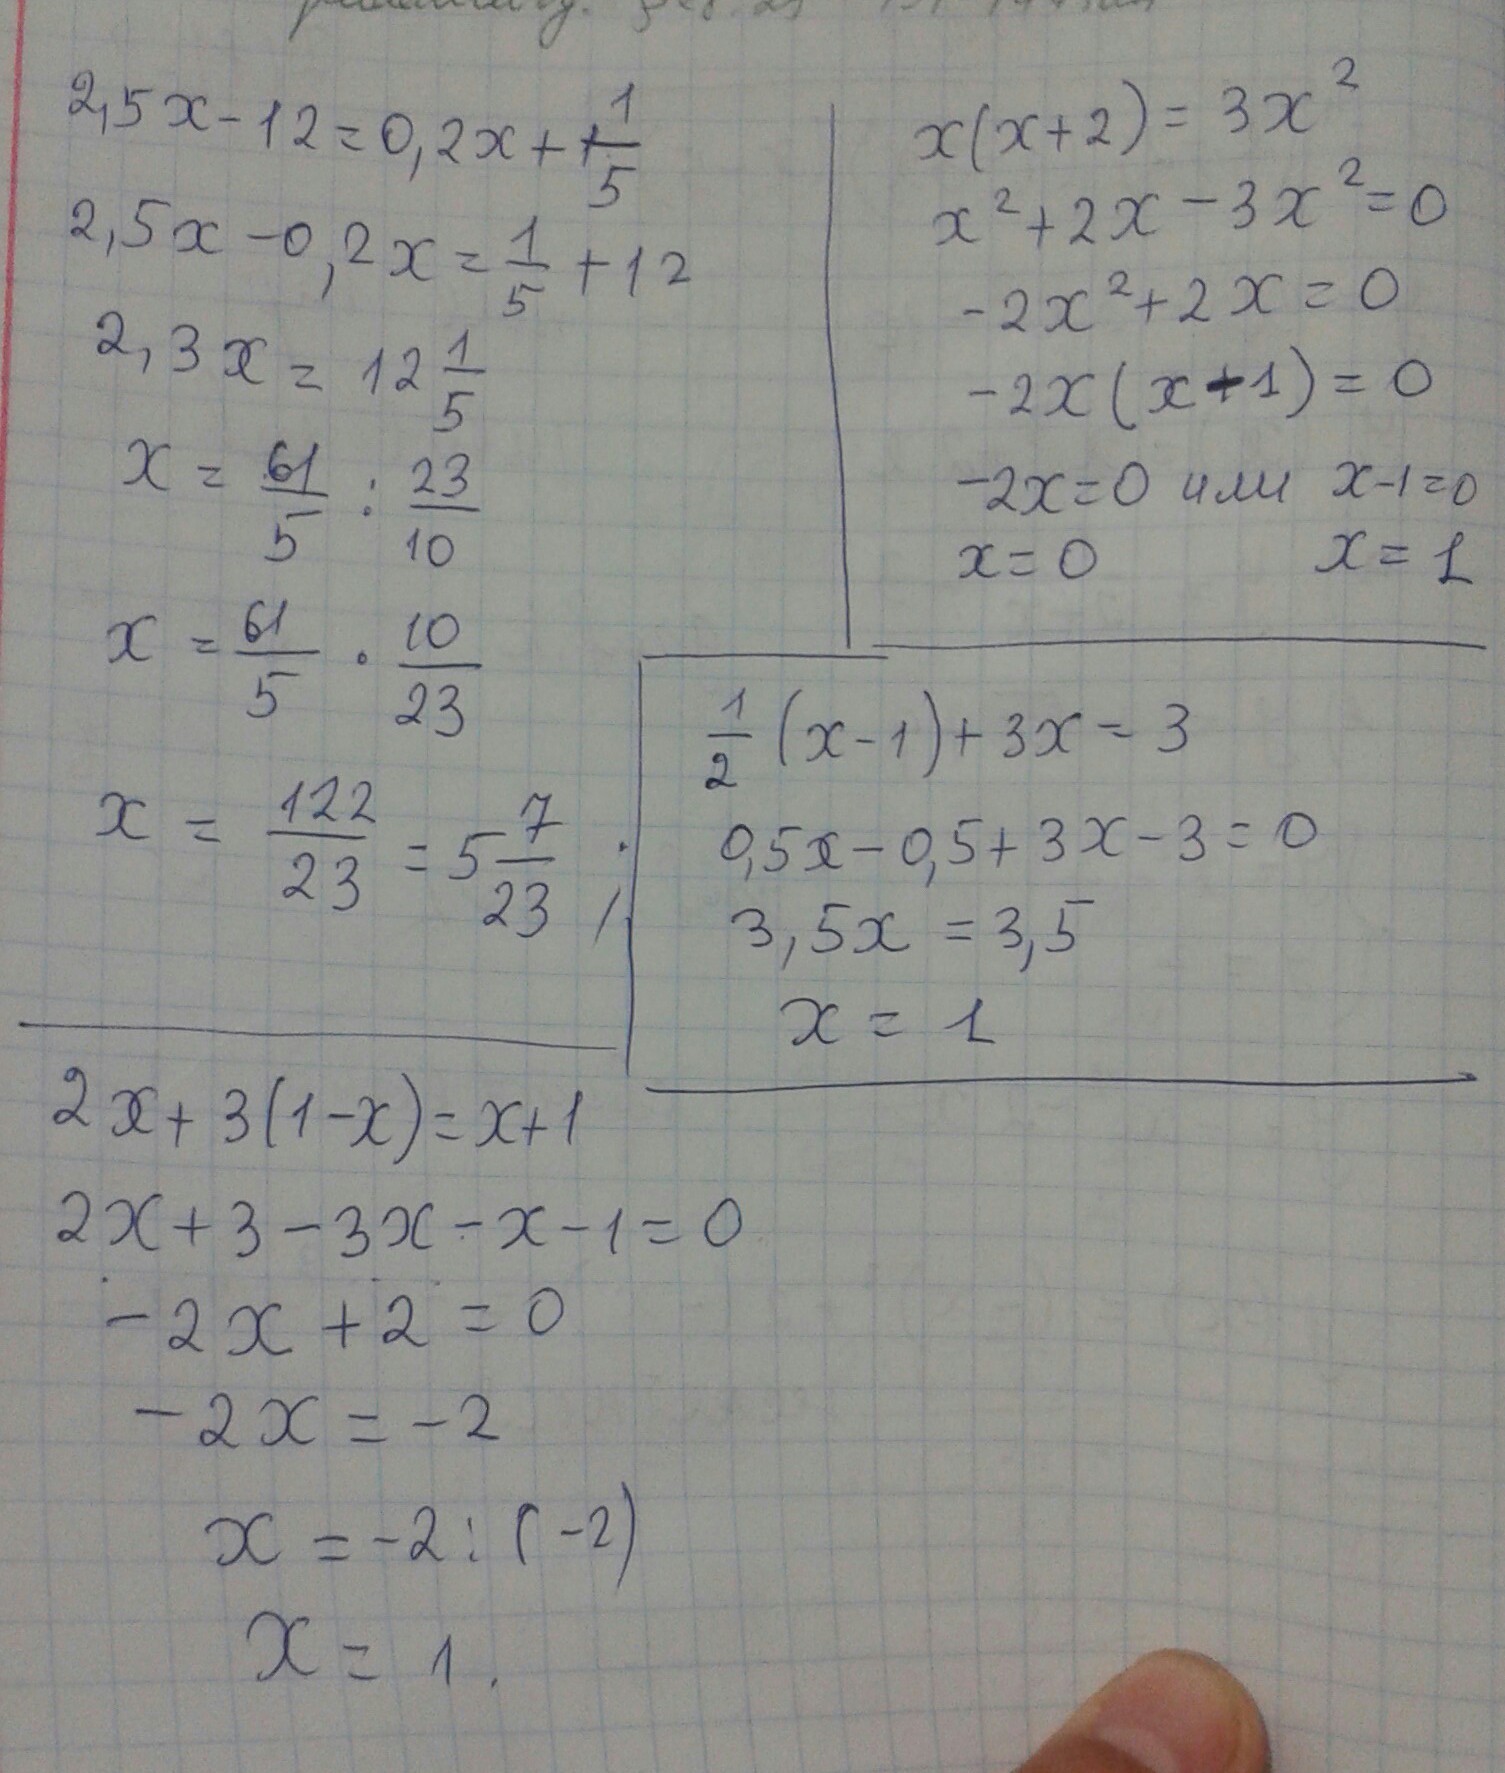 2,5x-12=0,2x+1/5
2,5x-0,2x=1/5+12
2,3x=12 1/5
x=61/5:23/10
x=61/5·10/23
x=122/23=5 7/23;
x(x+2)=3x²
x²+2x-3x²=0
-2x²+2x=0
-2x(x-1)=0
-2x=0 или x-1=0
x=0 x=1
1/2(x-1)+3x=3
0,5x-0,5+3x-3=0
3,5x=3,5
x=1
2x+3(1-x)=x+1
2x+3-3x-x-1=0
-2x+2=0
-2x=-2
x=-2:(-2)
x=1.